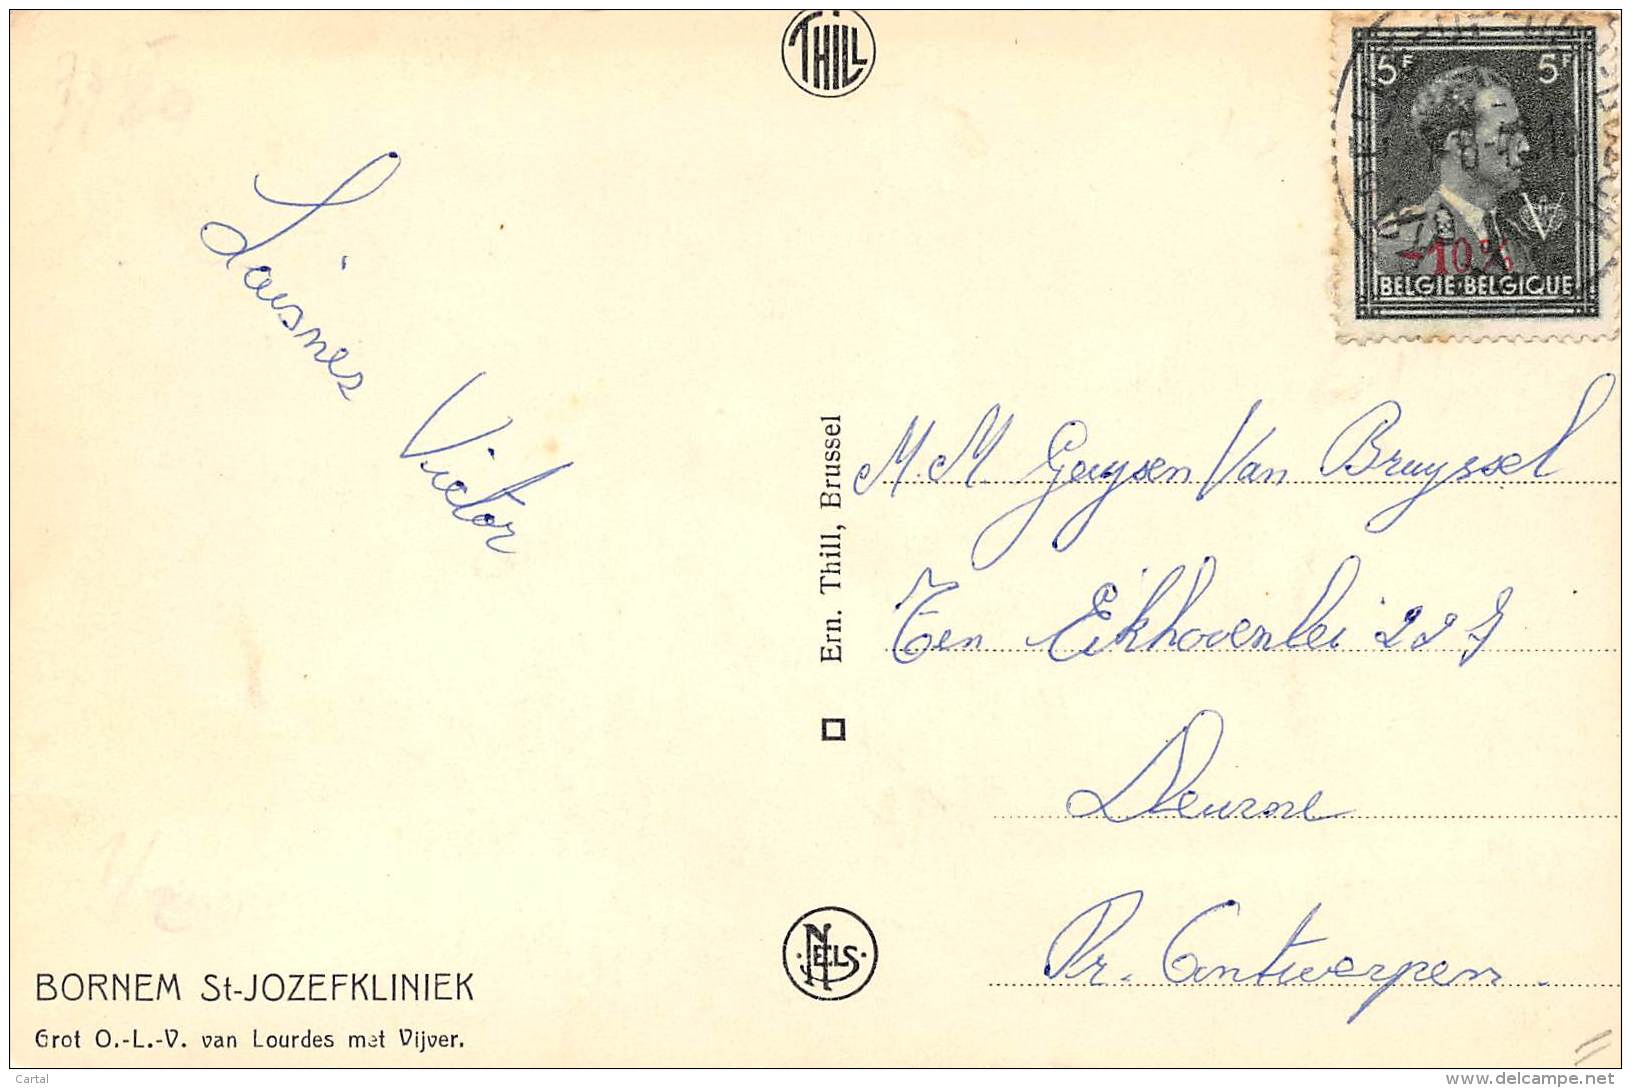 THILL
5F 5F
-10%
BELGIE·BELGIQUE
Laisnes
Victor
Ern. Thill, Brussel
M.M. Geysen Van Bruyssel
Ten Eikhovenlei 227
Deurne
Pr. Antwerpen.
NELS
BORNEM St-JOZEFKLINIEK
Grot O.-L.-V. van Lourdes met Vijver.
Cartal
www.delcampe.net